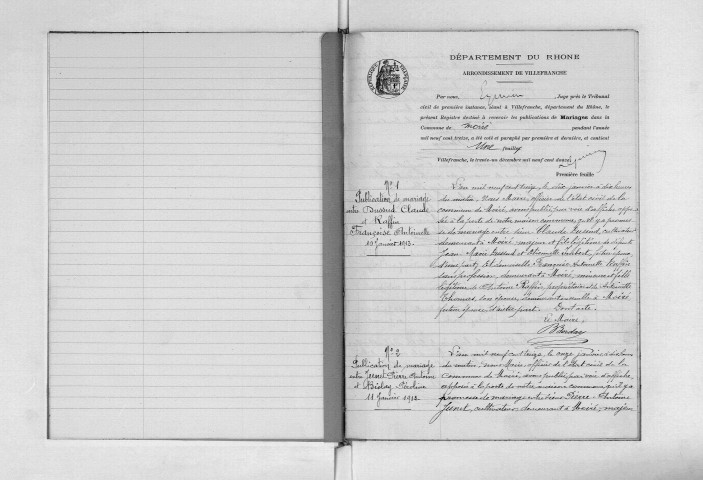 DÉPARTEMENT DU RHONE
ARRONDISSEMENT DE VILLEFRANCHE
Par nous, Juge près le Tribunal
civil de première instance, séant à Villefranche, département du Rhône, le
présent Registre destiné à recevoir les publications de Mariages dans la
Commune de Moiré pendant l'année
mil neuf cent treize, a été coté et paraphé par première et dernière, et contient
feuilles
Villefranche, le trente-un décembre mil neuf cent douze.
Première feuille
N° 1
Publication de mariage
entre Dussud Claude
et Raffin
Françoise Antoinette
10 Janvier 1913.
L'an mil neuf cent treize, le dix janvier à dix heures
du matin, Nous Maire, officier de l'état civil de la
commune de Moiré, avons publié, par voie d'affiche apposée
à la porte de notre maison commune, qu'il y a promesse
de mariage entre sieur Claude Dussud, cultivateur
demeurant à Moiré, majeur et fils légitime de
Jean Marie Dussud et
d'une part; Et demoiselle Françoise Antoinette Raffin
sans profession, demeurant à Moiré, mineure et fille
légitime de Antoine Raffin, propriétaire et de Antoinette
Thomas, son épouse, demeurant ensemble à Moiré
future épouse d'autre part. Dont acte.
Le Maire,
N° 2
Publication de mariage
entre Jean Pierre Antoine
et Briday
11 Janvier 1913.
L'an mil neuf cent treize, le onze janvier à dix heures
du matin, nous Maire, officier de l'état civil de la
Commune de Moiré, avons publié, par voie d'affiche,
apposée à la porte de notre maison commune, qu'il y a
promesse de mariage entre sieur Pierre Antoine
cultivateur, demeurant à Moiré, majeur